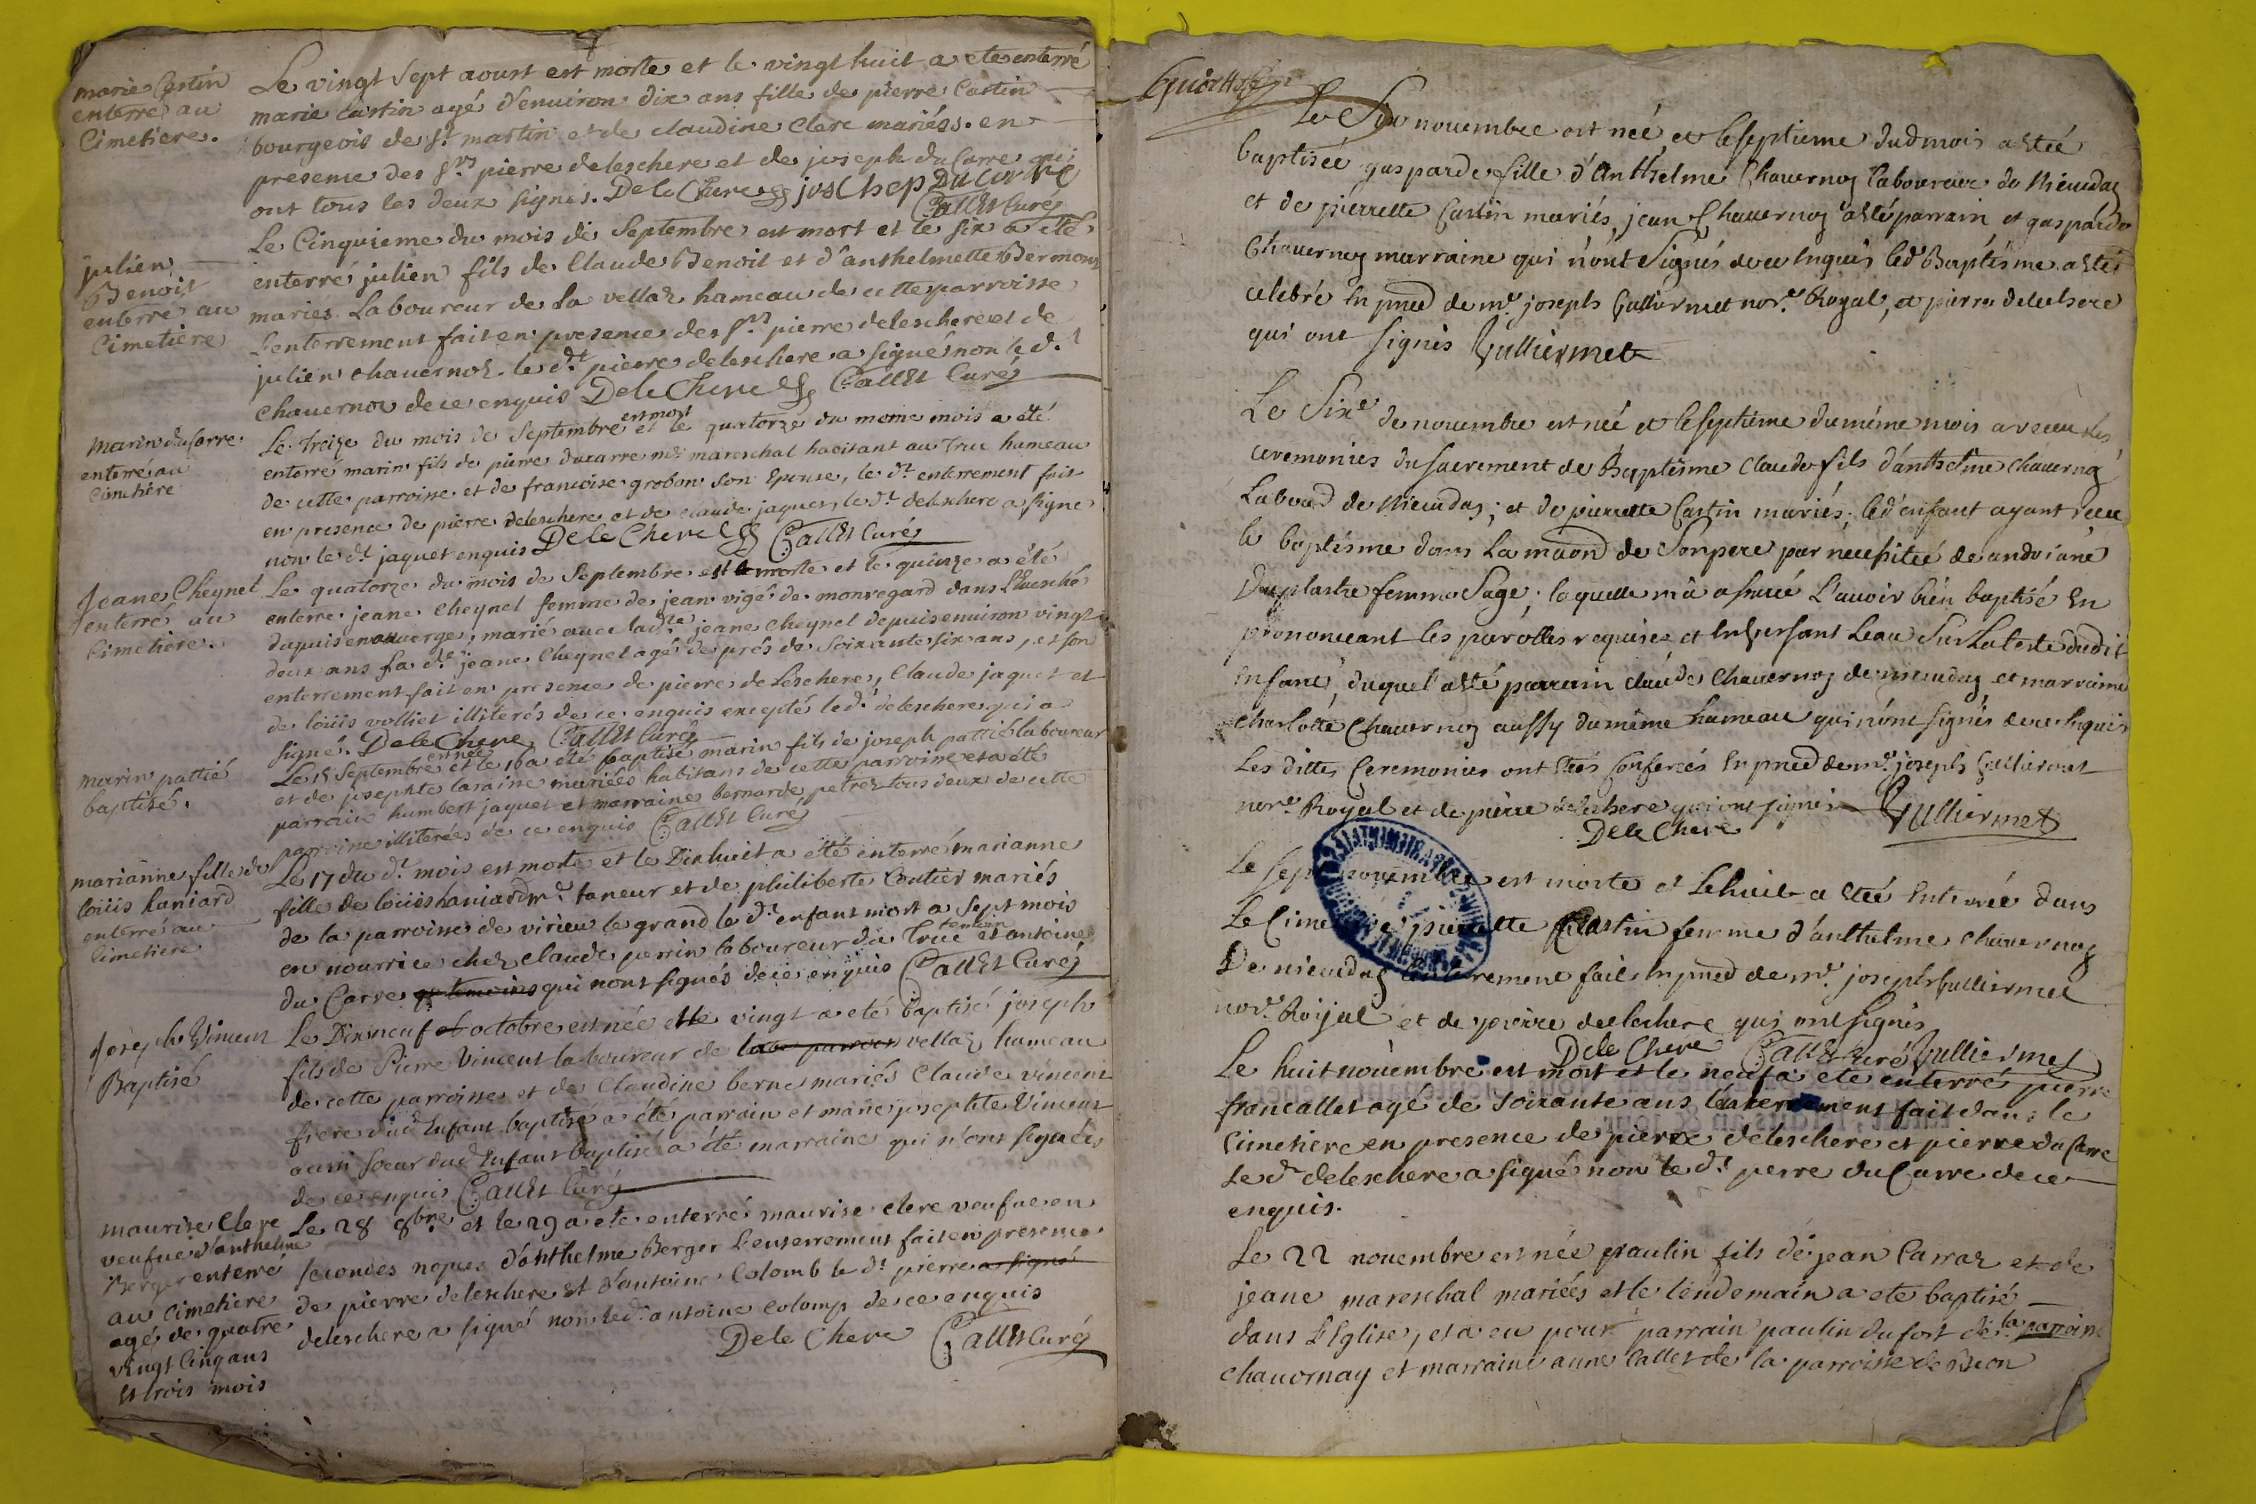 marie Castin
enterré au
Cimetiere.
Le vingt sept aoust est morte et le vingt huit a ete enterré
marie Castin agé d'enuiron dix ans fille de pierre Castin
bourgeois de st martin et de claudine Clerc mariéss. en
presence des srs pierre deleschere et de joseph du Carre qui
ont tous les deux signés. De le Chere josChep Du Carre
Callet Curé
julien
Benoit
enterré au
Cimetiere
Le Cinquieme du mois de Septembre est mort et le six a eté
enterré julien fils de Claude Benoit et d'anthelmette Bermond
mariés Laboureur de la vellaz hameau de cette parroisse
L'enterrement fait en presence des srs pierre deleschere et de
julien chauernoz. le dt pierre deleschere a signé non le dt
chauernoz de ce enquis De le Chere Callet Curé
marin du Carre
enterré au
Cimetiere
est mort
Le treize du mois de Septembre et le quatorze du meme mois a été
enterré marin fils de pierre ducarre mr mareschal habitant au Truc hameau
de cette parroisse et de francoise grobon son Epouse, le dt enterrement fait
en presence de pierre deleschere et de claude jaquet, le dt deleschere a signé
non le dt jaquet enquis De le Chere Callet Curé
Jeane Cheynet
enterré au
Cimetiere.
Le quatorze du mois de Septembre est morte et le quinze a été
enterré jeane cheynet femme de jean vigé de monregard dans L'Euesché
dupuis en auuerge, marié auec ladte jeane cheynet depuis enuiron vingt
deux ans la de jeane Cheynet agé de prés de soixante six ans, et son
enterrement fait en presence de pierre de Leschere, Claude jaquet et
de loüis volliet illiterés de ce enquis excepté le dt deleschere qui a
signé. De le Chere Callet Curé
marin pattié
baptisé.
est née
Le 15 Septembre et le 16 a été baptisé marin fils de joseph pattié laboureur
et de josephte laraine mariées habitans de cette parroisse et a été
parrain humbert jaquet et marraine bernarde petrez tous deux de cette
parroisse illiterées de ce enquis Callet Curé
marianne fille de
loüis haniard
enterré au
Cimetiere
Le 17 du dt mois est morte et le Dixhuit a été enterré marianne
fille de loüis haniard mr taneur et de philiberte Coutier mariés
de la parroisse de virieu le grand le dt enfant mort a sept mois
en nourrice chez claude perrin laboureur du Truc et antoine
du Carre qui nont signés de ce enquis Callet Curé
joseph Vincent
Baptisé
Le Dixneuf octobre est née et le vingt a eté baptisé joseph
fils de Pierre Vincent laboureur de vellaz hameau
de cette parroisse et de Claudine berne mariés Claude vincent
frere dud Enfant baptisé a été parrain et marie josephte Vincent
aussi soeur dud Enfant baptisé a été marraine qui n'ont signés
de ce enquis Callet Curé
maurise Clere
veufue d'anthelme
Berger enterré
au Cimetiere
agé de quatre
vingt Cinq ans
et trois mois
Le 28 8bre et le 29 a ete enterré maurise clere veufue en
secondes nopces d'anthelme Berger L'enterrement fait en presence
de pierre deleschere et d'antoine Colomb le dt pierre a signé
deleschere a signé non ledt antoine colomp de ce enquis
De le Chere Callet Curé
Le Six nouembre est néé et le septieme dud mois a estéé
baptiséé gasparde fille d'Anthelme Chauernoz Laboureur de
et de pierrette Castin mariés, jean Chauernoz a esté parrain et gasparde
Chauernoz marraine qui n'ont signés de ce enquis led Baptisme a esté
celebré en pned de mr joseph Gulliermet nore Royal, et pierre deleschere
qui ont signés Gulliermet
Le Sixe de nouembre est néé et le septieme du méme mois a receu les
ceremonies du sacrement de Baptisme claude fils d'anthelme chauernoz
Labourd de et de pierrette Castin mariés; led enfant ayant receu
le baptisme dans la maond de son pere par necessitéé de andriane
Duplastre femme sage; laquelle m'a assuréé L'auoir bién baptisé En
prononceant les parolles requises et En versant Leau sur La teste dudit
Enfant, duquel a esté parrain claude Chauernoz de et marraine
Charlotte Chauernoz aussy du méme hameau qui n'ont signés de ce enquis
Les dittes Ceremonies ont Etés Conferéés En pned de mr joseph Gulliermet
nore Royal et de pierre deleschere qui ont signés Gulliermet
De le Chere
Le sept nouembre est morte et Le huit a estéé Enterrée dans
Le Cimetiere pierrette Castin femme d'anthelme chauernoz
De L'enterrement fait En pned de mr joseph Gulliermet
nore Roijal et de pierre deleschere qui ont signés
De le Chere Callet Curé Gulliermet
Le huit nouembre est mort et le neuf a ete enterré pierre
francallet agé de soixante ans L'enterrement fait dans le
Cimetiere en presence de pierre deleschere et pierre du Carre
Le dt deleschere a signé non le dt pierre du Carre de ce
enquis.
Le 22 nouembre est née paulin fils de jean Carraz et de
jeane mareschal mariées et le lendemain a ete baptisé
dans L'Eglise, et a eu pour parrain paulin dufort de la parroisse
chauornay et marraine anne Callet de la parroisse de Beon